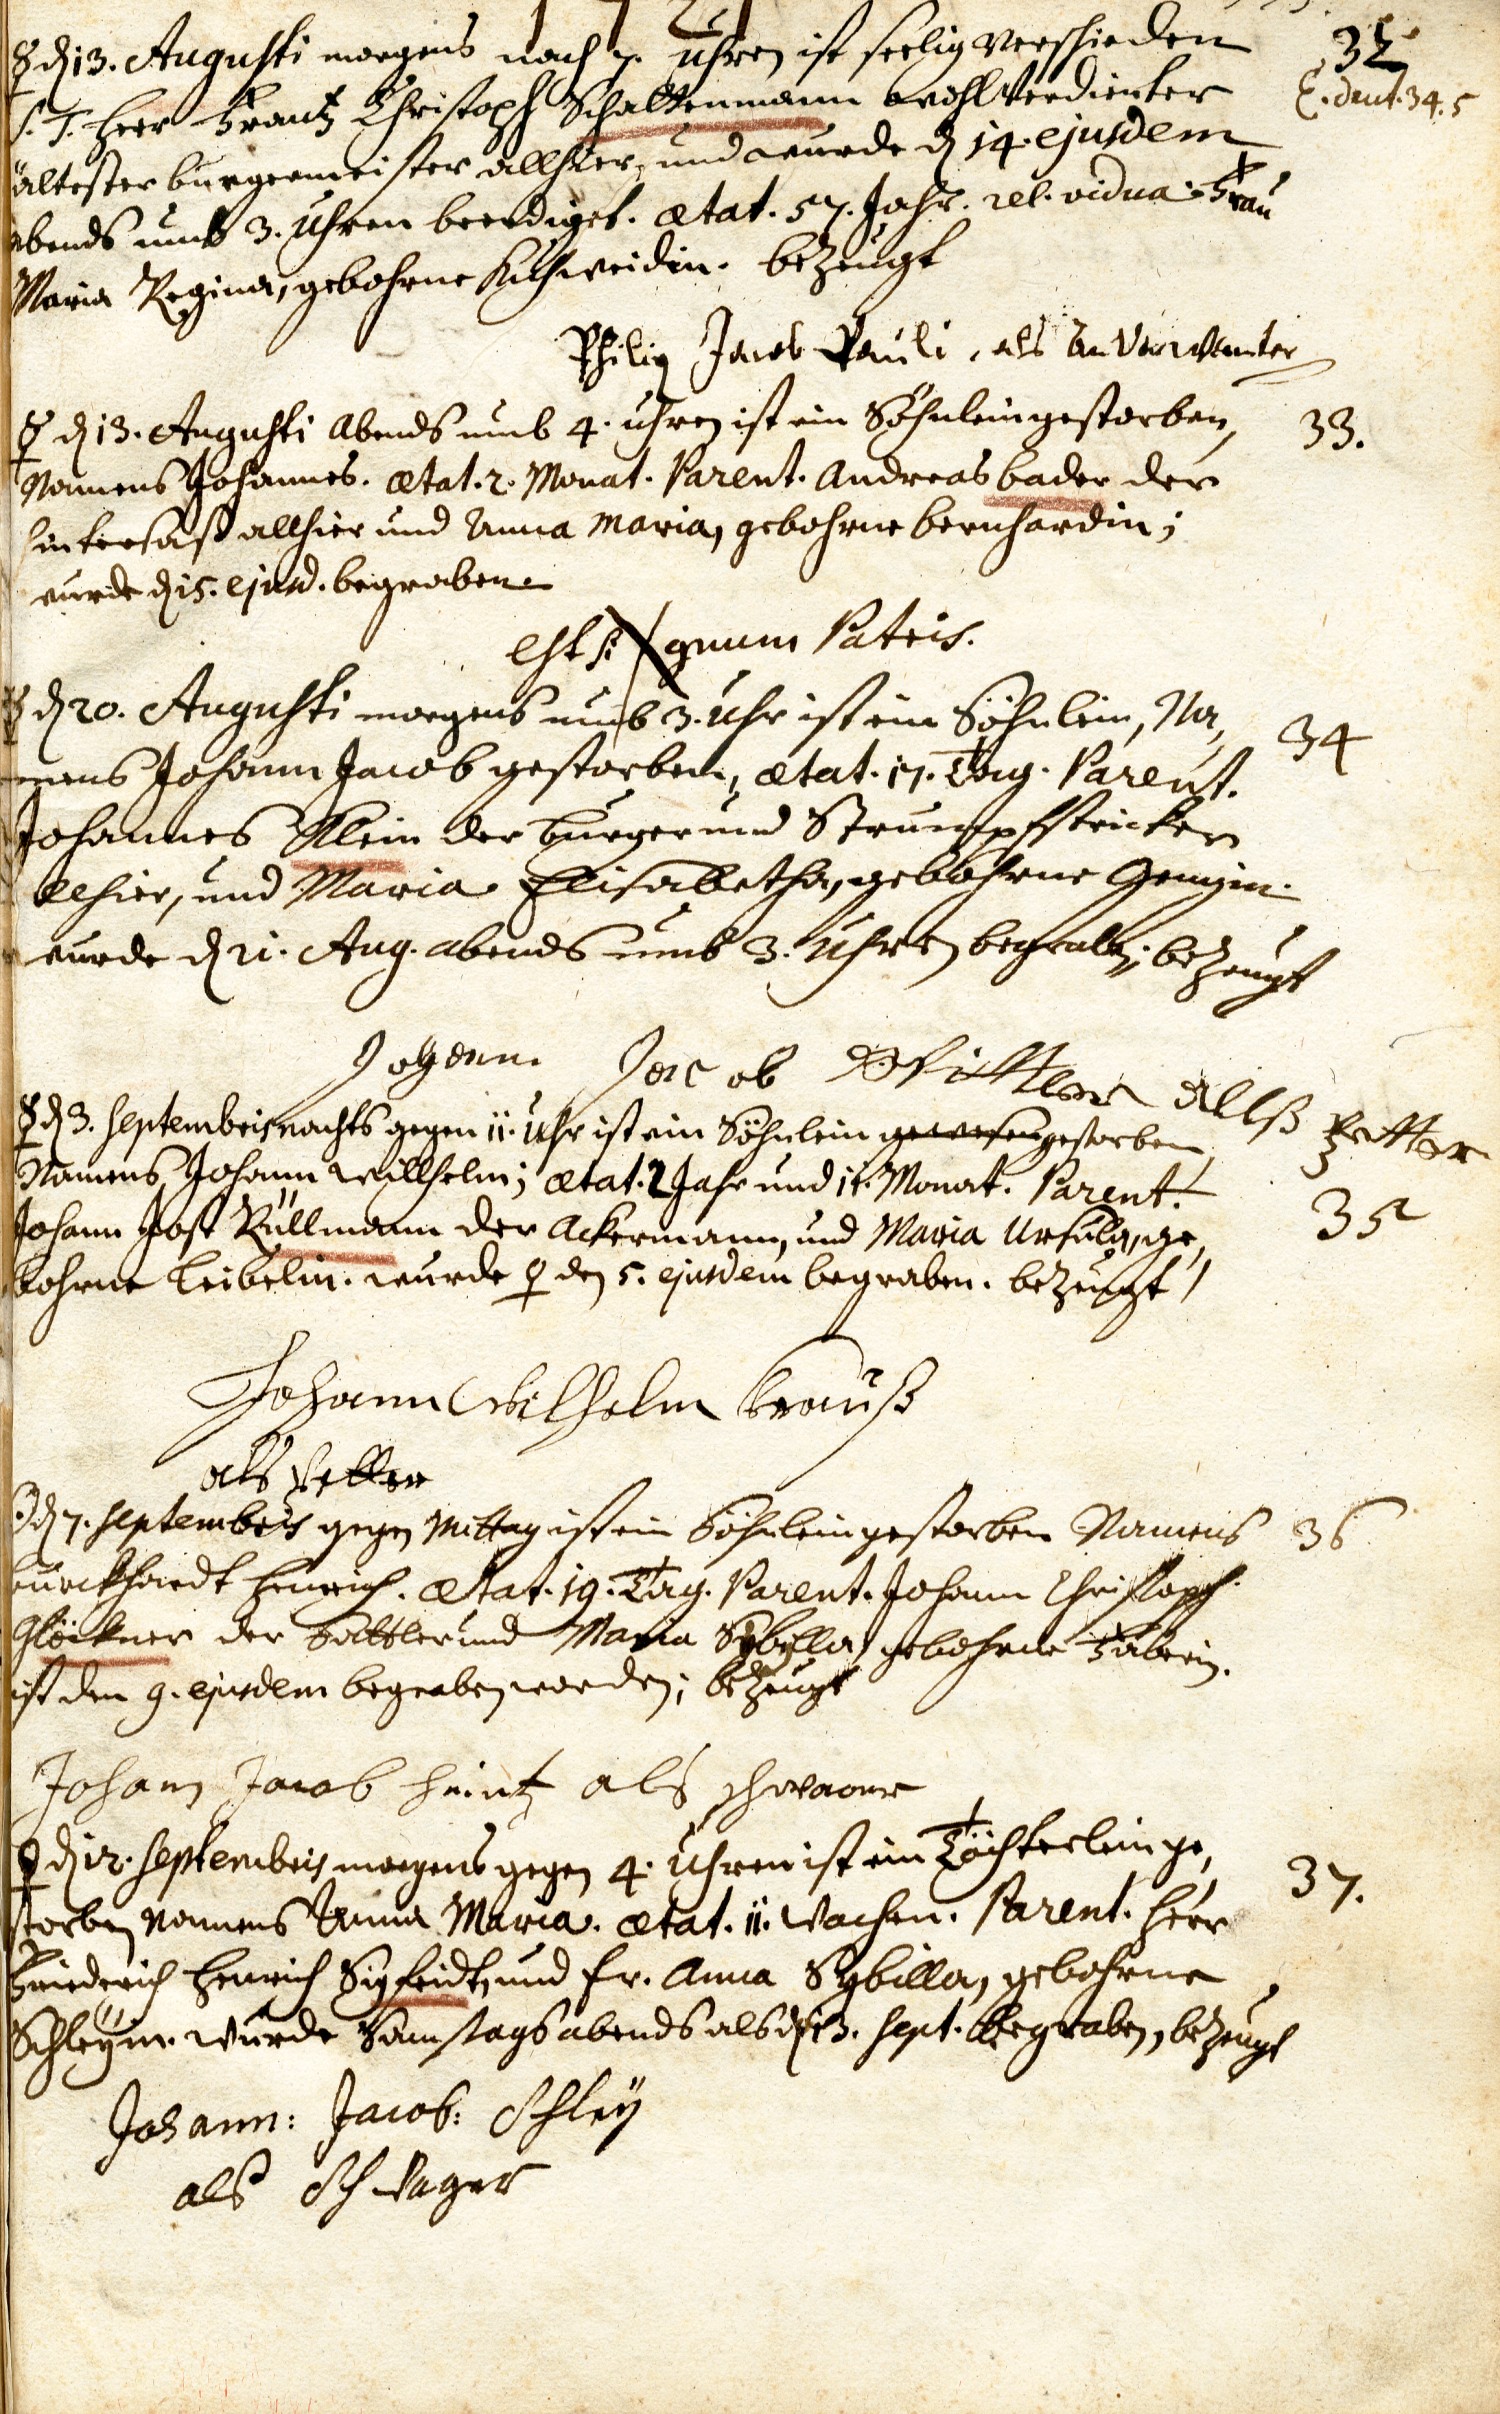 ☿ d 13. Augusti morgens nach 7. uhren ist seelig verschieden
32
S. T. Herr Frantz Christoph Schattenmann wohlverdienter
T. deut. 34. 5
ältester burgermeister allhier, und wurde d 14. ejusdem
abends umb 3. Uhren beerdiget. ætat. 57. Jahr. rel. vidua. Frau
Maria Regina, gebohrne Kuhweidin. bezeugt
Philip Jacob Pauli, als anverwanter
☿ d 13. Augusti Abends umb 4. uhren ist ein Söhnlein gestorben,
33.
Namens Johannes. ætat. 2. Monat. Parent. Andreas bader der
hintersaß allhier und Anna Maria, gebohrne bernhardin;
wurde d 15. ejusd. begraben.
est si X gnum Patris.
☿ d 20. Augusti morgens umb 3. Uhr ist ein Söhnlein, Na,
34
mens Johann Jacob gestorben, ætat. 17. Tag. Parent.
Johannes Klein der burger und Strumpfstricker
allhier, und Maria Elisabetha, gebohrne
wurde d 21. Aug. abends umb 3. Uhren begraben; bezeugt
Johann Jacob allß Petter
☿ d 3. Septembris nachts gegen 11. Uhr ist ein Söhnlein gewesen gestorben
Namens Johann Willhelm; ætat. 2 Jahr und 11. Monat. Parent.
35
Johann Jost Rüllmann der Ackermann, und Maria Ursula, ge,
bohrne Leibelin. wurde ♀ den 5. ejusdem begraben. bezeugt
Johann Wilhelm Krauß
als Petter
d 7. Septembris gegen Mittag ist ein Söhnlein gestorben Namens
36
burckhardt Henrich. ætat. 19. Tag. Parent. Johann Christoph
Glöckner der Sattler und Maria Sybilla gebohrne Faberin.
ist den 9. ejusdem begraben worden; bezeugt
Johann Jacob Heintz als schwager
♀ d 12. Septembris morgens gegen 4. Uhren ist ein Töchterlein ge,
37.
storben Namens Anna Maria. ætat. 11. Wochen. Parent. Herr
Friederich Henrich Sigfridt, und Fr. Anna Sybilla, gebohrne
Schleyin. wurde Samstags abends als d 13. Sept. begraben, bezeugt
Johann: Jacob: Schleÿ
als Schwager